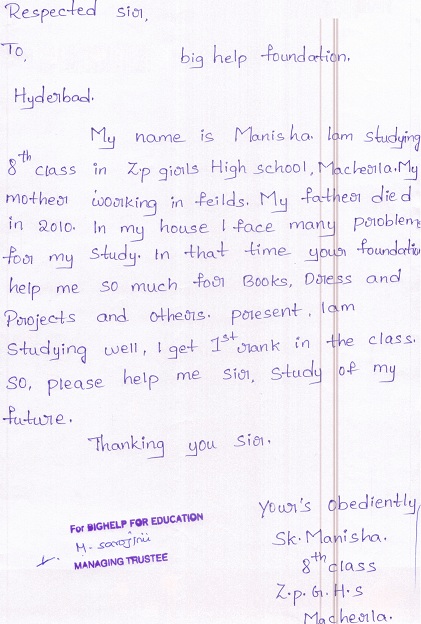 Respected sir,
To,
big help foundation.
Hyderbad.
My name is Manisha. Iam studying
8th class in Z.p girls High school, Macherla. My
mother woorking in feilds. My father died
in 2010. In my house I face many problem
for my study. In that time your foundatio
help me so much for Books, Dress and
Projects and others. present, Iam
Studying well, I get 1st rank in the class.
So, please help me sir, study of my
future.
Thanking you sir.
For BIGHELP FOR EDUCATION
M. sarojini
MANAGING TRUSTEE
Your's obediently,
Sk. Manisha.
8th class
Z.p. G. H. s
Macherla.